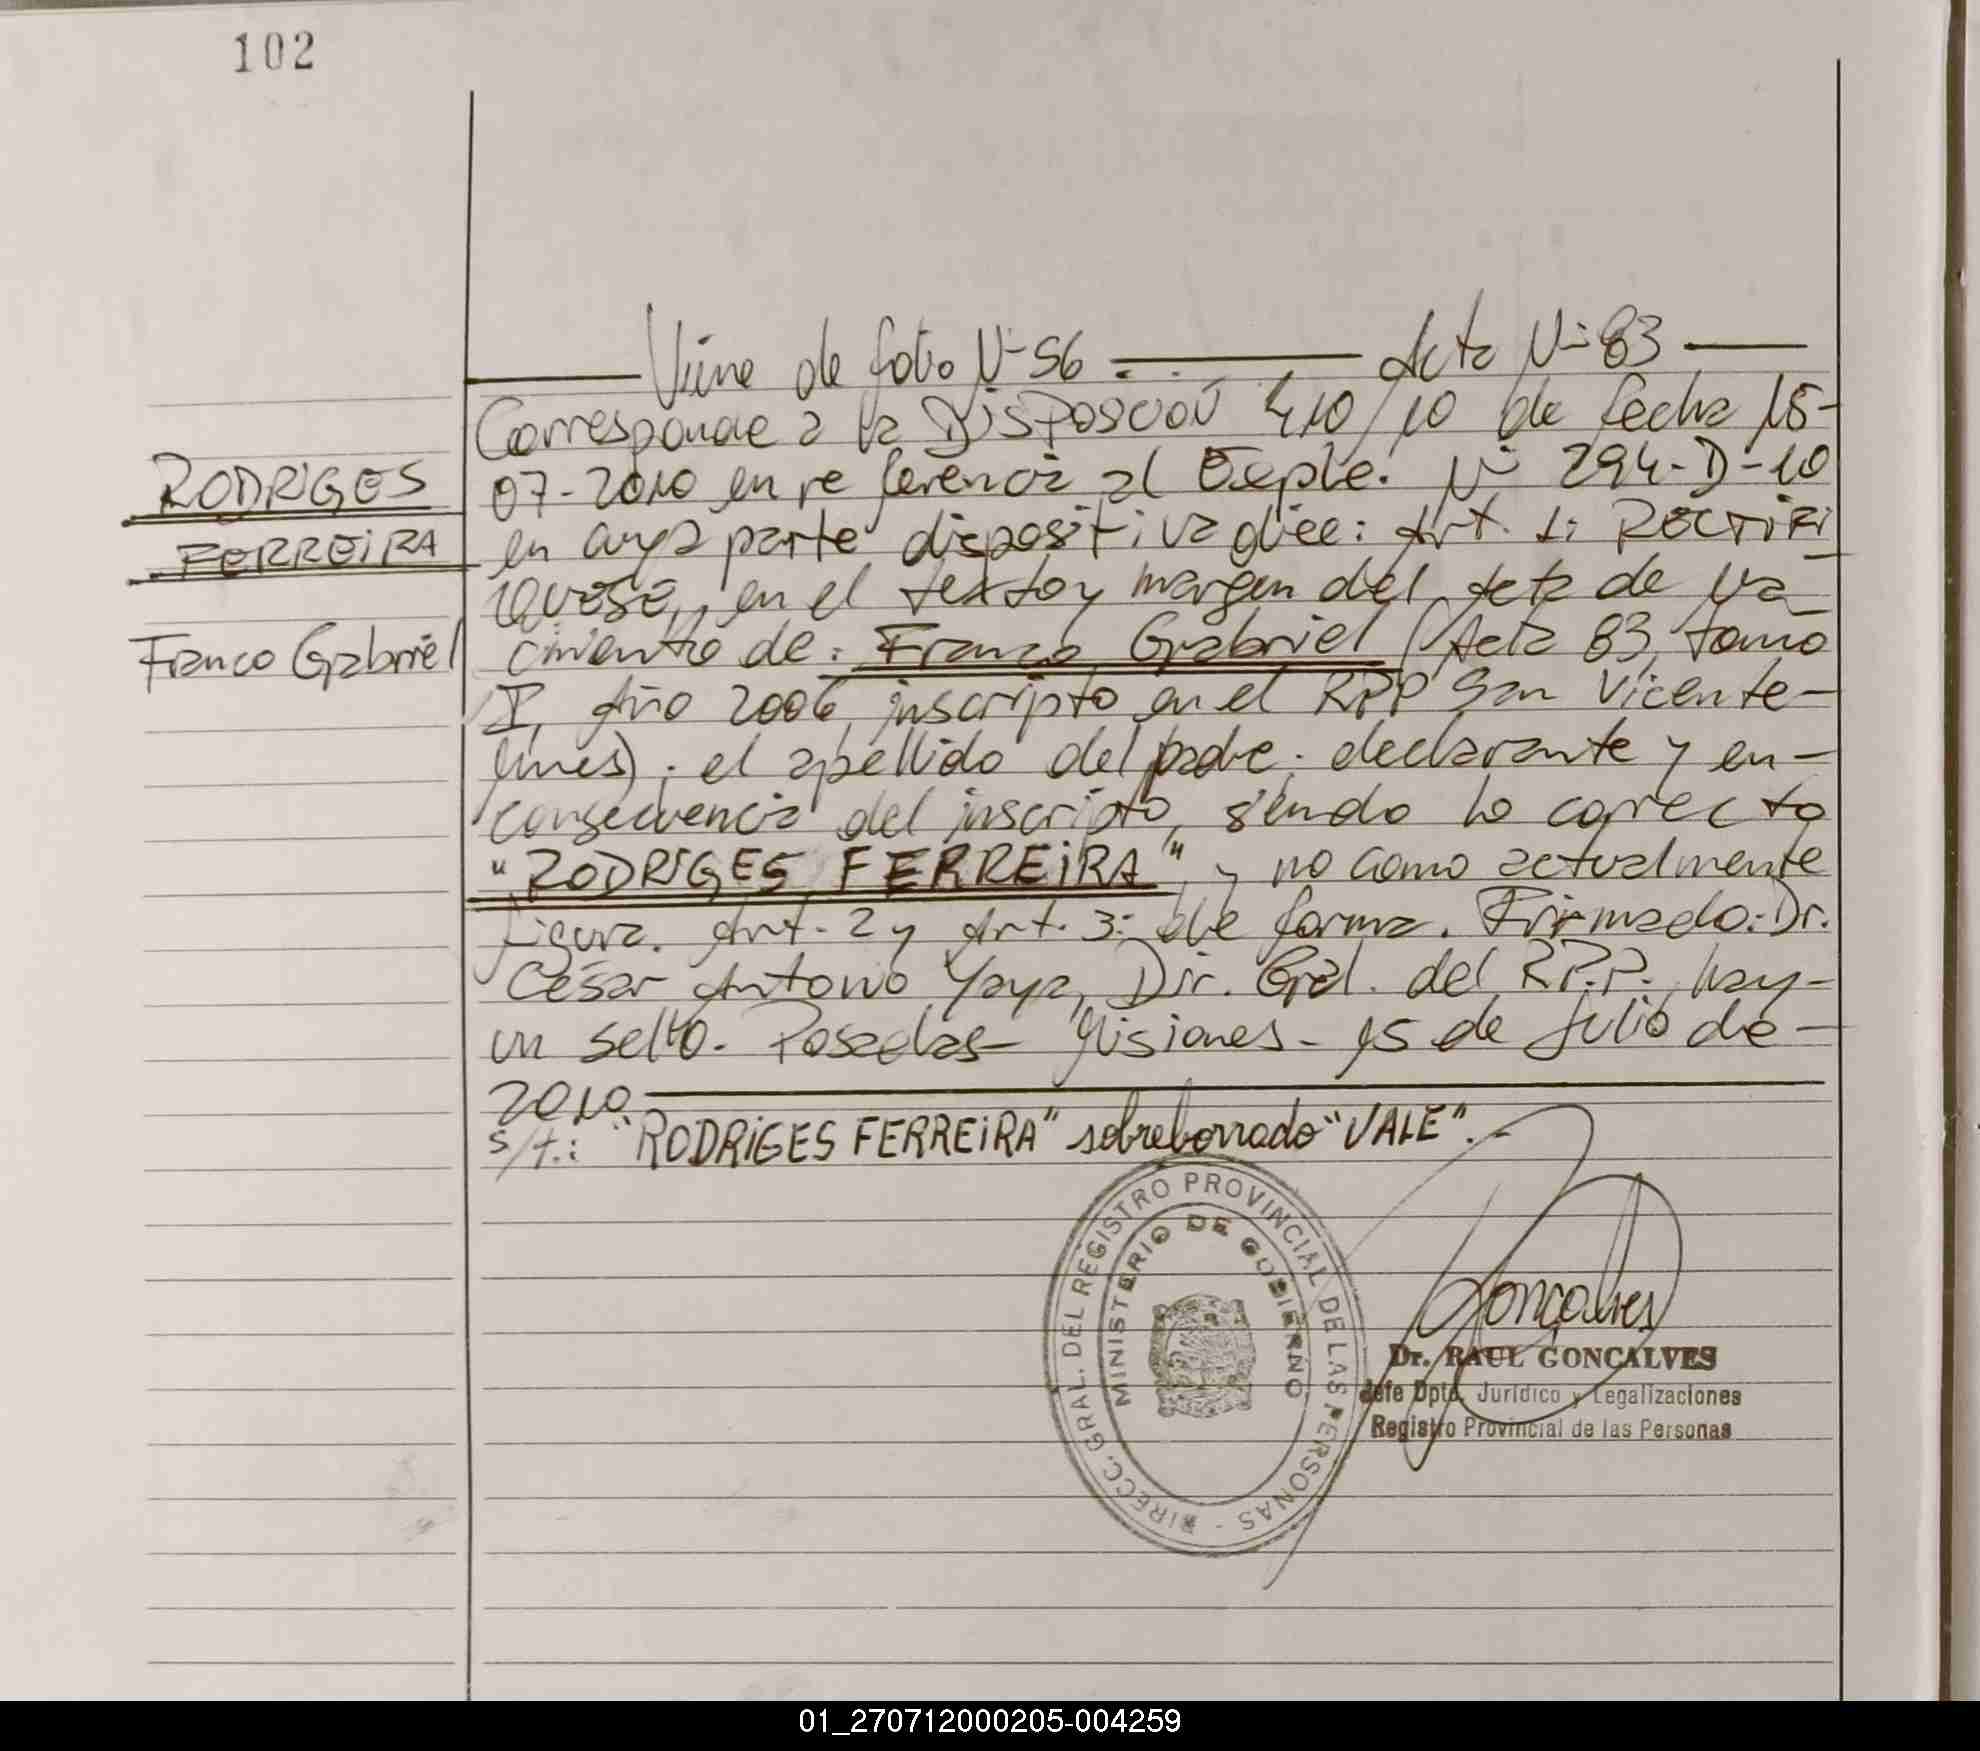 102
Viene de folio Nº 56 Acta Nº 83
Corresponde a la DISPOSICIÓN 410/10 de fecha 15-
07-2010 en referencia al Expte. Nº 294-D-10
en cuya parte dispositiva dice: Art. 1: RECTIFI
QUESE, en el texto y margen del Acta de Na_
cimiento de: Franco Gabriel (Acta 83, tomo
I, Año 2006, inscripto en el RPP San Vicente-
Mnes): el apellido del padre; declarante y en-
consecuencia del inscripto, siendo lo correcto
"RODRIGES FERREIRA" y no como actualmente
figura. Art. 2 y Art. 3: de forma. Firmado: Dr.
César Antonio Yaya, Dir. Gral. del R.P.P. hay-
un sello. Posadas- Misiones- 15 de Julio de-
2010
s/t.: "RODRIGES FERREIRA" sobreborrado "VALE".-
RODRIGES
FERREIRA
Franco Gabriel
DIRECC. GRAL. DEL REGISTRO PROVINCIAL DE LAS PERSONAS -
MINISTERIO DE GOBIERNO
Gonçalves
Dr. RAUL GONCALVES
Jefe Dpto. Jurídico y Legalizaciones
Registro Provincial de las Personas
01_270712000205-004259